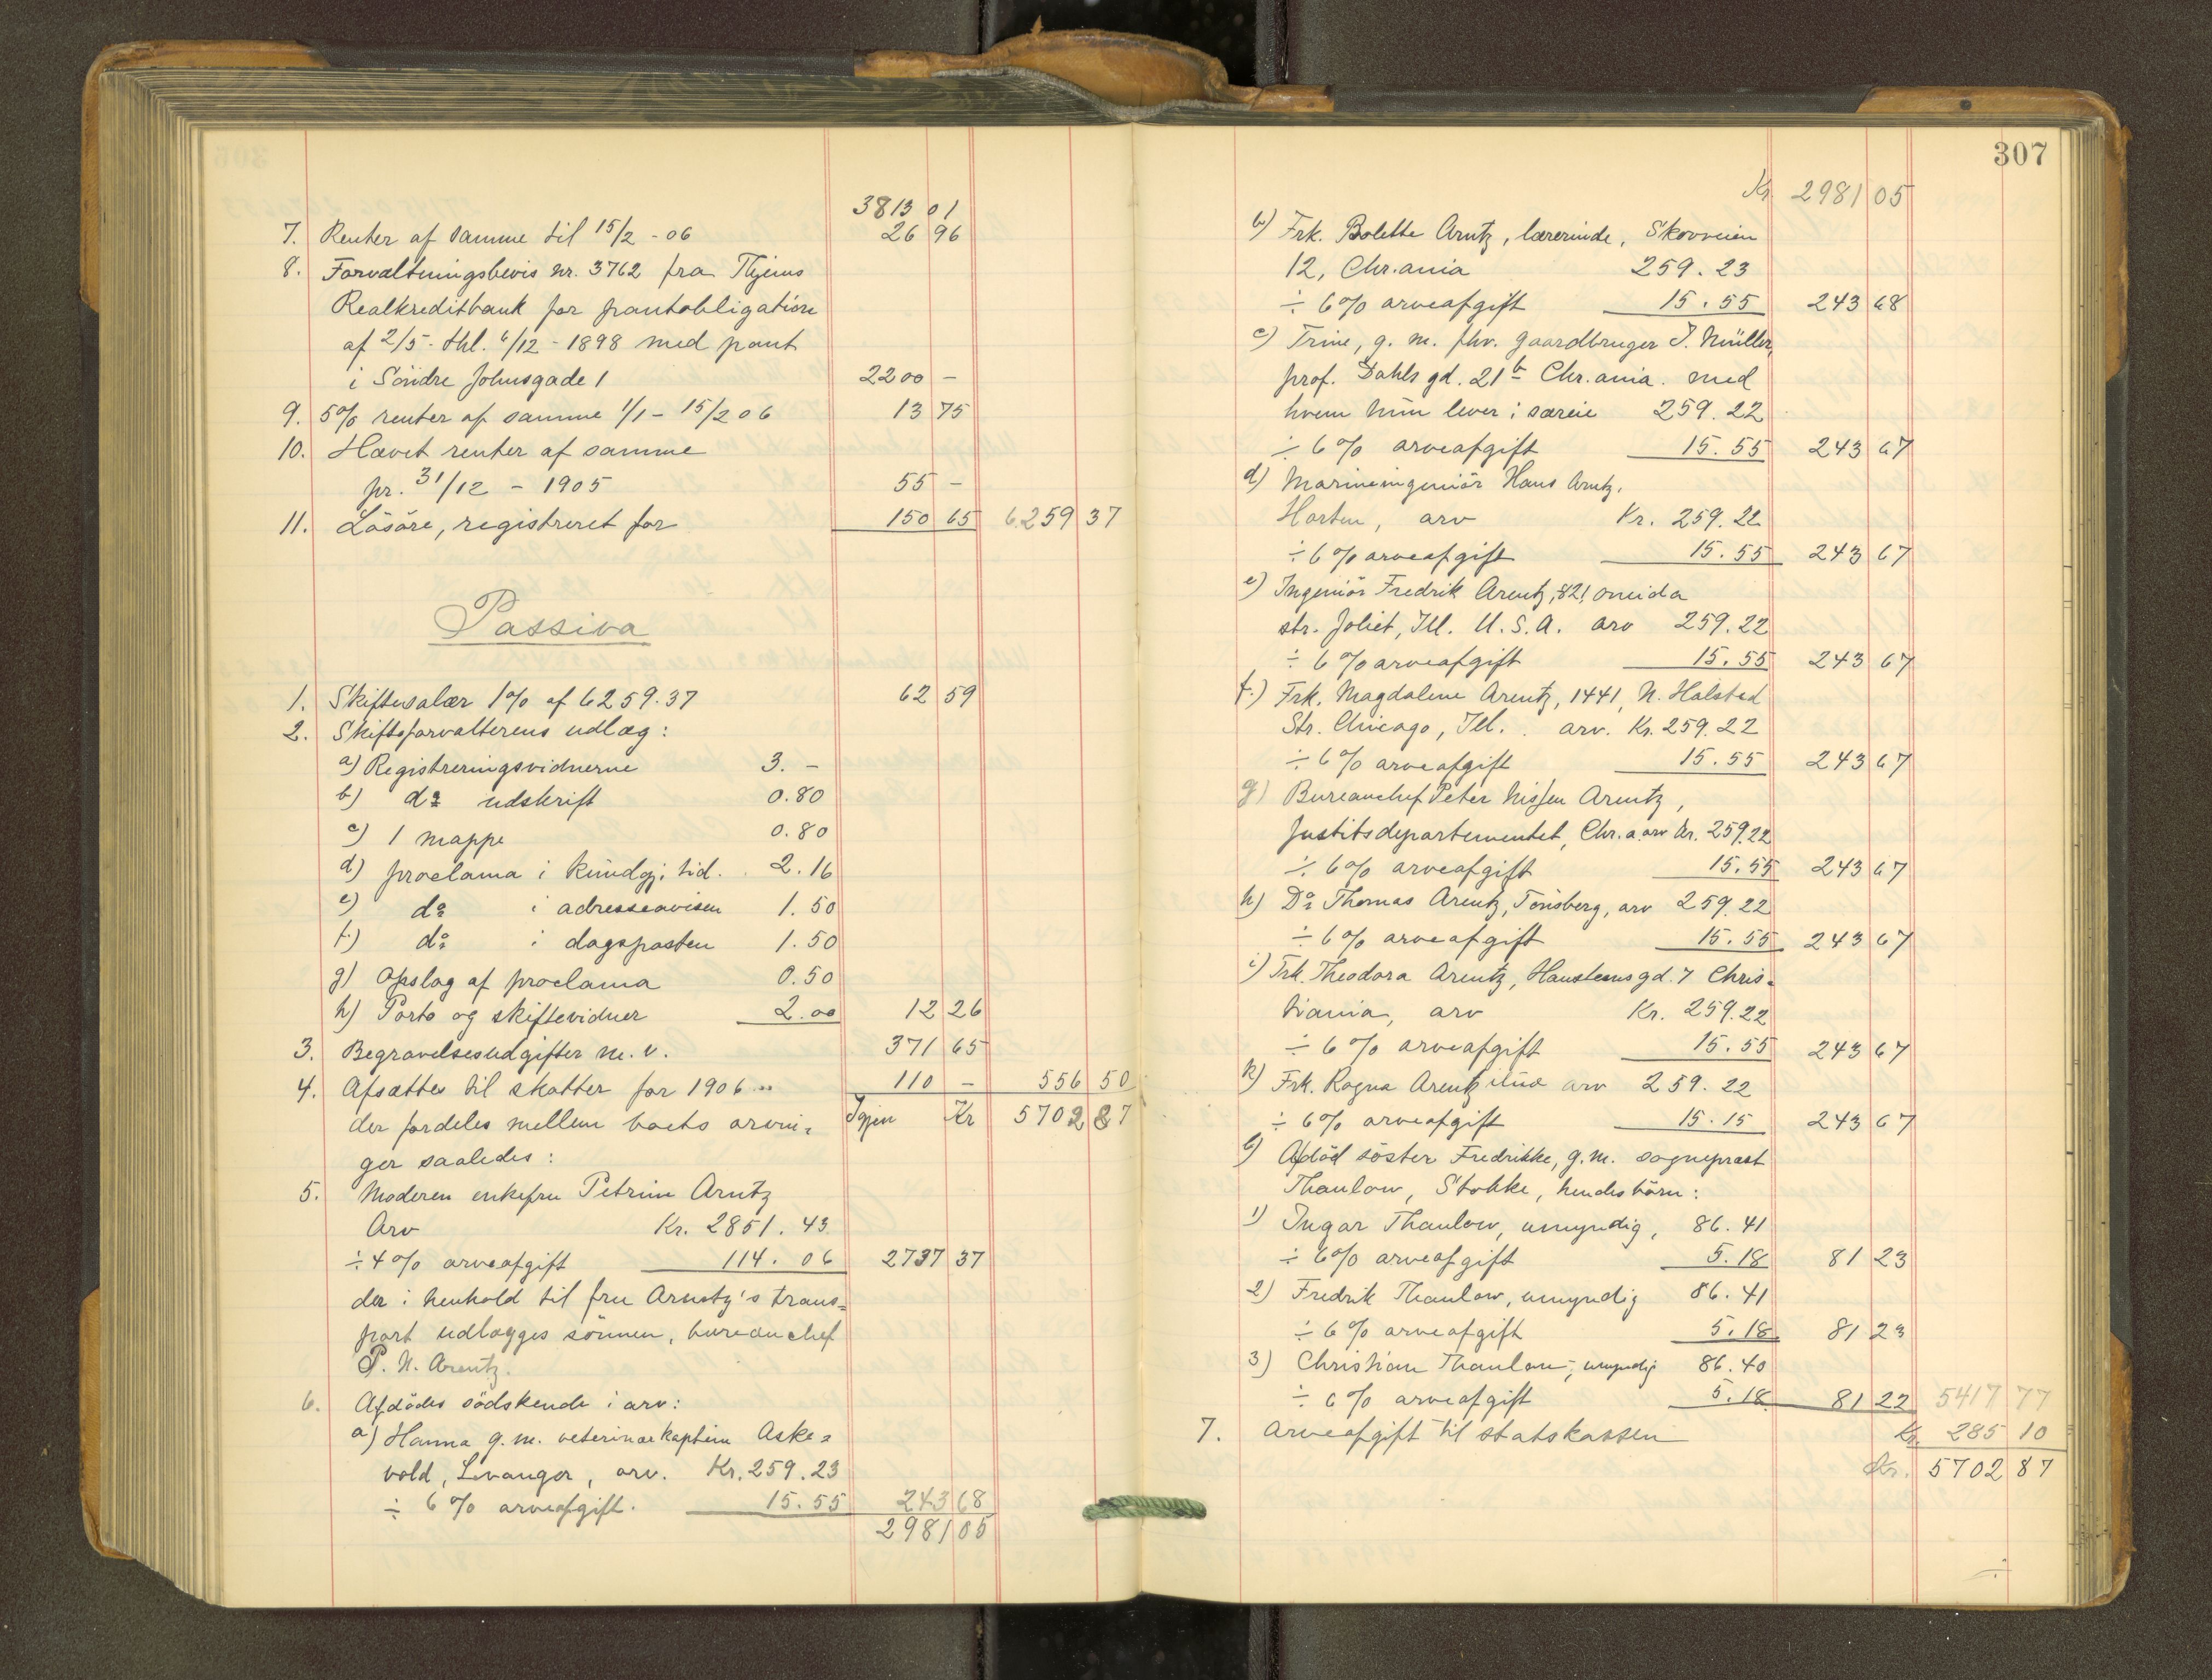 3813 01
7. Renter af samme til 15/2 - 06 26 96
8. Forvaltningsbevis nr. 3762 fra Thjems
Realkreditbank for pantobligation
af 2/5 - thl. 6/12 - 1898 med pant
i Söndre Johnsgade 1 2200 -
9. 5% renter af samme 1/1 - 15/2 06 13 75
10. Hævet renter af samme
pr. 31/12 - 1905 55 -
11. Lösöre, registreret for 150 65 6259 37
Passiva
1. Skiftesalær 1% af 6259.37 62 59
2. Skifteforvalterens udlæg:
a) Registreringsvidnerne 3. -
b) do udskrift 0.80
c) 1 mappe 0.80
d) proclama i kundgj. tid. 2.16
e) do i adresseavisen 1.50
f) do i dagsposten 1.50
g) Opslag af proclama 0.50
h) Porto og skiftevidner 2.00 12 26
3. Begravelsesudgifter m. v. 371 65
4. Afsættes til skatter for 1906 110 - 556 50
der fordeles mellem boets arvin= Igjen Kr 5702 87
ger saaledes:
5. Moderen enkefru Petrine Arntz
Arv Kr. 2851.43
÷ 4% arveafgift 114.06 2737 37
der i henhold til fru Arntz's trans=
port udlægges sönnen, bureauchef
P. N. Arentz.
6. Afdödes södskende i arv:
a) Hanna g. m. veterinærkaptein Aske=
vold, Levanger, arv. Kr. 259.23
÷ 6% arveafgift. 15.55 243 68
2981 05
307
Kr 2981 05
b) Frk. Bolette Arntz, lærerinde, Skovveien
12, Chr.ania 259.23
÷ 6% arveafgift 15.55 243 68
c) Trine, g. m. fhv. gaardbruger J. Müller,
prof. Dahls gd. 21b Chr.ania. med
hvem hun lever i særeie 259.22
÷ 6% arveafgift 15.55 243 67
d) Marineingeniör Hans Arntz,
Horten, arv Kr. 259.22
÷ 6% arveafgift 15.55 243 67
e) Ingeniör Fredrik Arentz, 821 oneida
str. Joliet, Ill. U.S.A. arv 259.22
÷ 6% arveafgift 15.55 243 67
f.) Frk. Magdalene Arentz, 1441, N. Halsted
Str. Chicago, Ill. arv. Kr. 259.22
÷ 6% arveafgift 15.55 243 67
g) Bureauchef Peter Nissen Arentz,
Justitsdepartementet, Chr.a. arv Kr. 259.22
÷ 6% arveafgift 15.55 243 67
h) Do Thomas Arentz, Tönsberg, arv 259.22
÷ 6% arveafgift 15.55 243 67
i) Frk. Theodora Arentz, Hausteensgd. 7 Chris=
tiania, arv Kr. 259.22
÷ 6% arveafgift 15.55 243 67
k) Frk. Ragna Arentz arv 259.22
÷ 6% arveafgift 15.15 243 67
l) Afdöd söster Fredrikke, g. m. sognepræst
Thaulow, Stokke, hendes börn:
1) Ingar Thaulow, umyndig, 86.41
÷ 6% arveafgift 5.18 81 23
2) Fredrik Thaulow, umyndig 86.41
÷ 6% arveafgift 5.18 81 23
3) Christian Thaulow, umyndig 86.40
÷ 6% arveafgift 5.18 81 22 5417 77
7. Arveafgift til statskassen Kr. 285 10
Kr. 5702 87